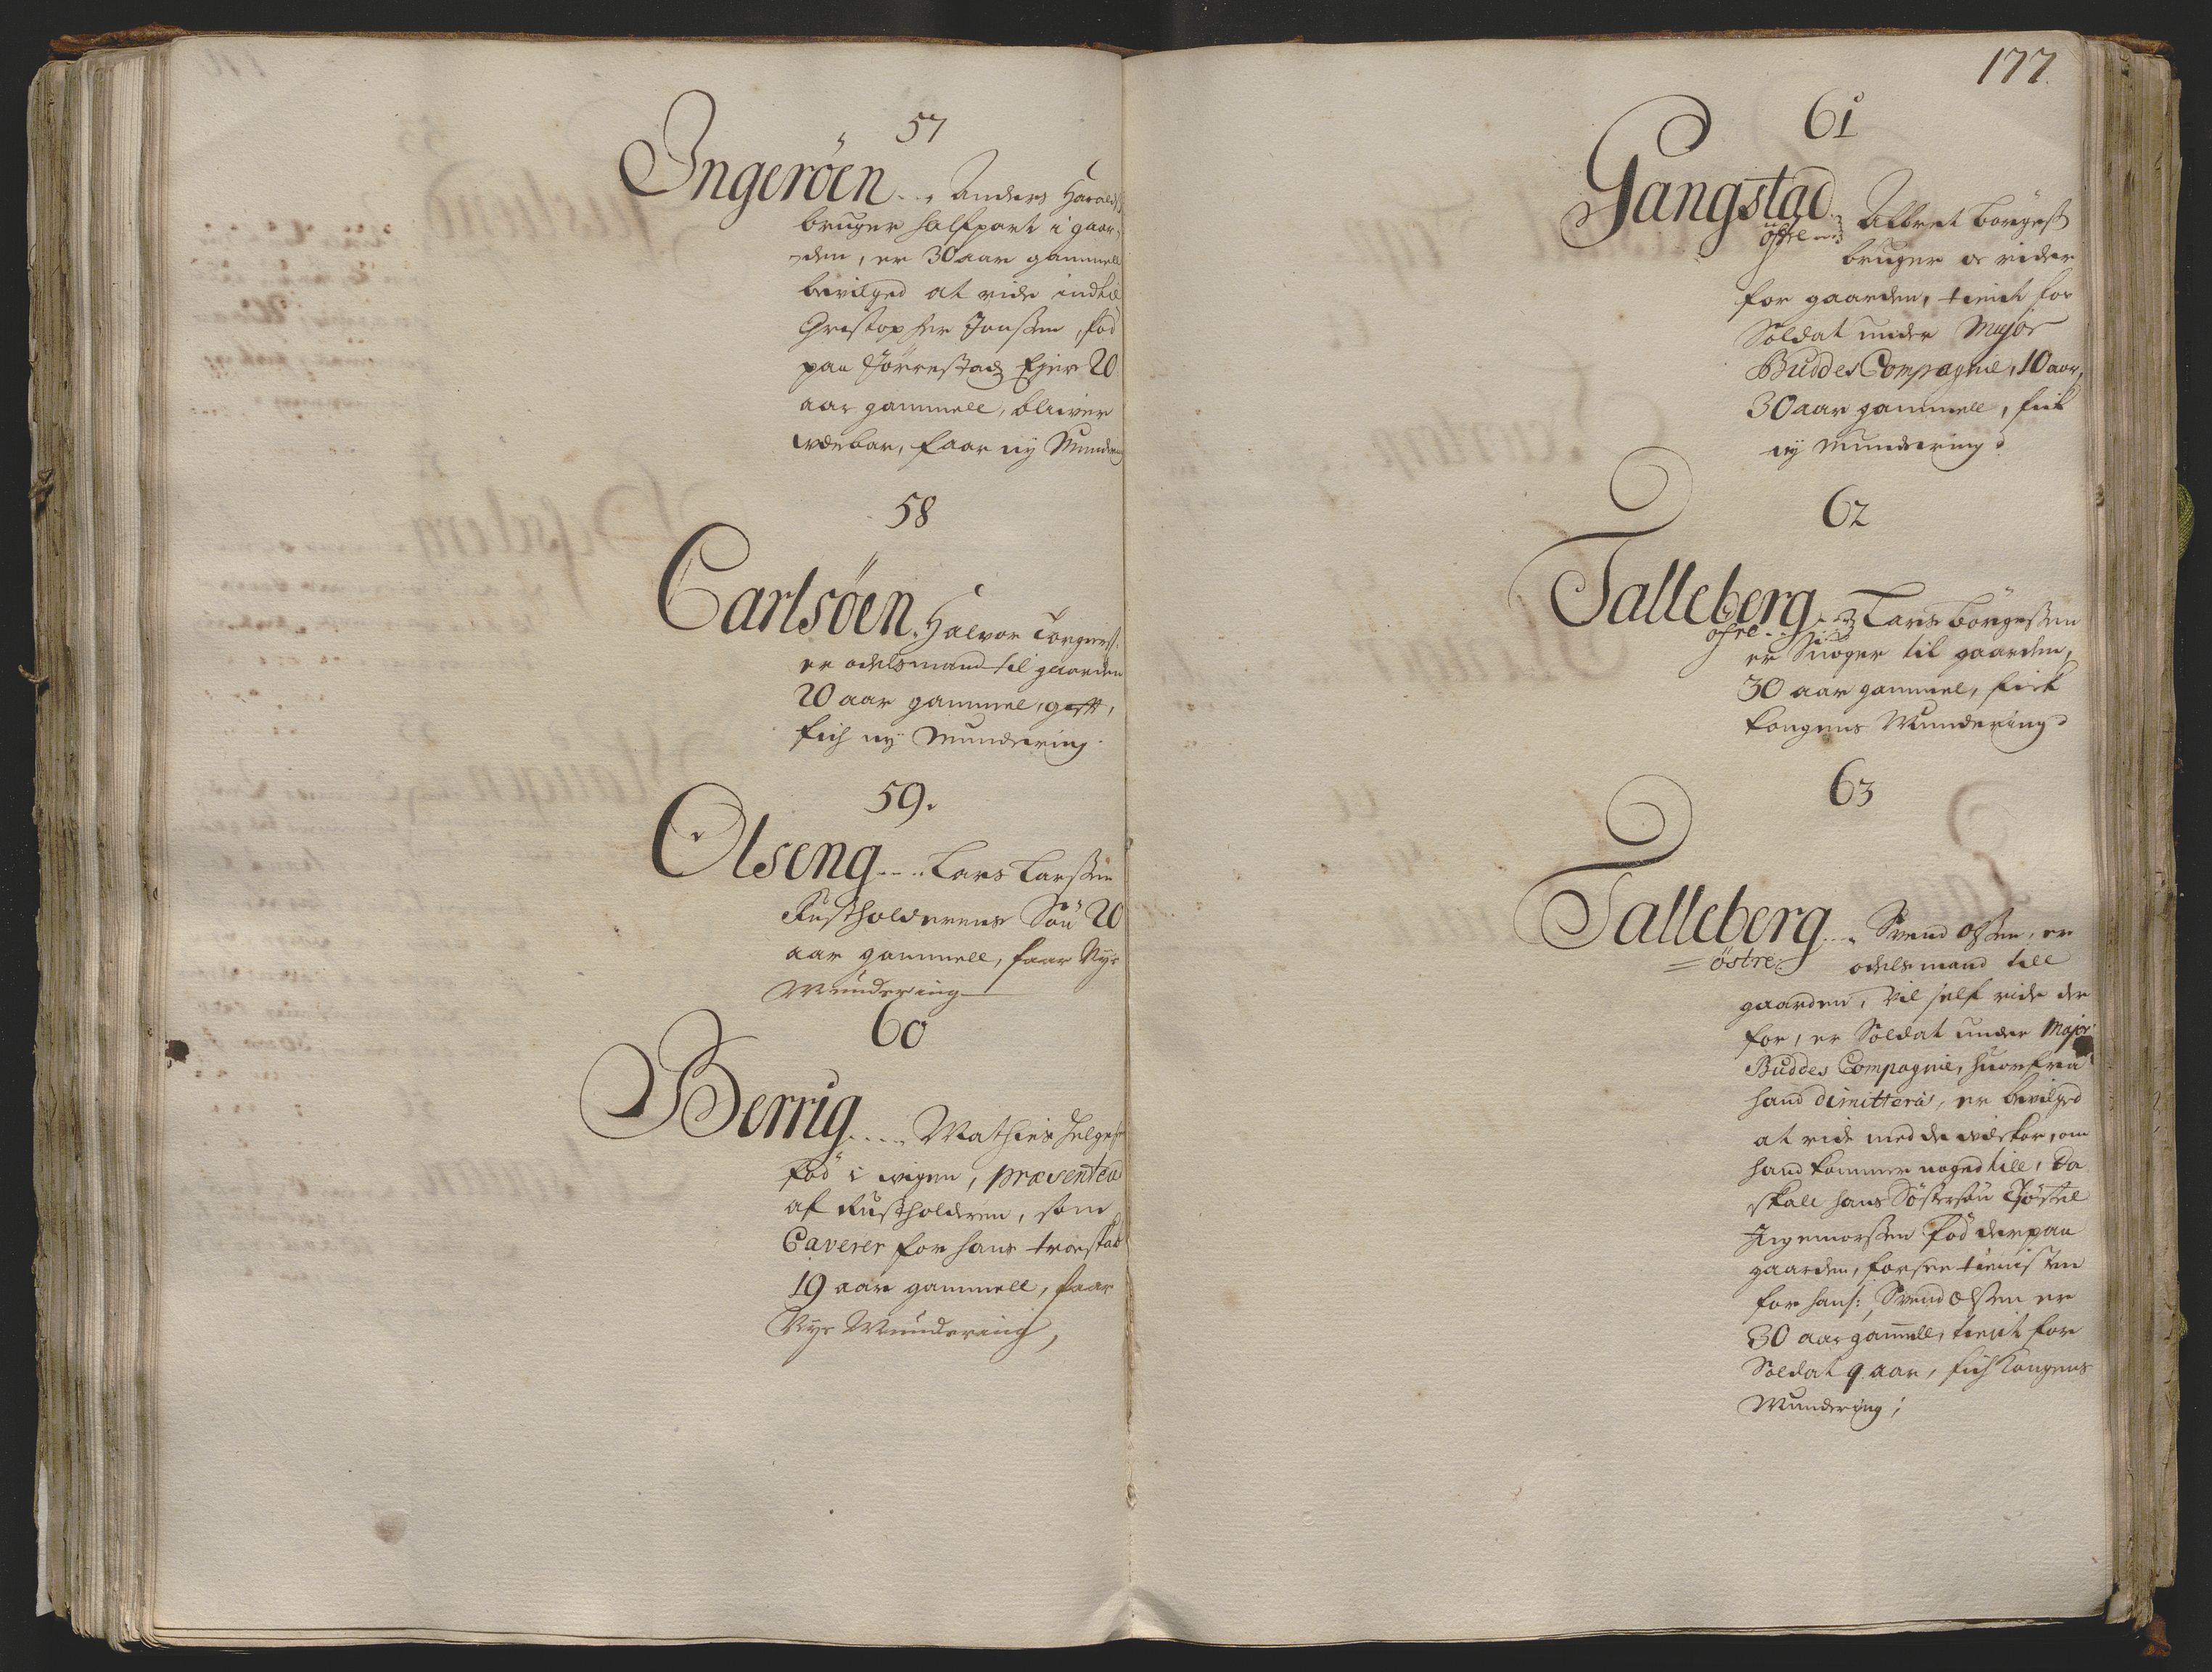 57
Ingeröen... Anders Haralds
bruger halfpart i gaar,
den, er 30 aar gammell
bevilged at ride indtil
Christopher Jonsßen, fød
paa Jörrestad Ejer 20
aar gammell, bliver
værbar, faar ny Munder
58
Carlsöen. Halvor Torgerss:
er odelsmand til gaarden
20 aar gammel, gifft,
fich ny Mundering.
59.
Olseng.... Lars Larsßen
Rustholderens Søn 20
aar gammell, faar Nye
Mundering
60
Berrig..... Mathies Helges
fød i wigen, præsentered
af Rustholderen, som
Caverer for hans troeskab
19 aar gammell, faar
Nye Mundering,
177.
61
Gangstad
öfre Albret Börgesß
bruger oc rider
for gaarden, tient for
Soldat under Major
Buddes Compagnie, 10 aar,
30 aar gammell, fick
ny Mundering
62
Talleberg... Lars Börgesßen
öfre
er Suoger til gaarden,
30 aar gammel, fick
Kongens Mundering
63
Talleberg... Svend Olsßen, er
östre odelsmand till
gaarden, vil self ride der
for, er Soldat under Major
Buddes Compagnie, huorfra
hand dimitteris, er bevilged
at ride med de vilkor, om
hand kommer noged till, da
skall hans Söstersön Kjöstel
Ingemorsßen fød der paa
gaarden, forsee tienisten
for ham: Svend Olsßen er
30 aar gammell, tient for
Soldat 9 aar, fich Kongens
Mundering;